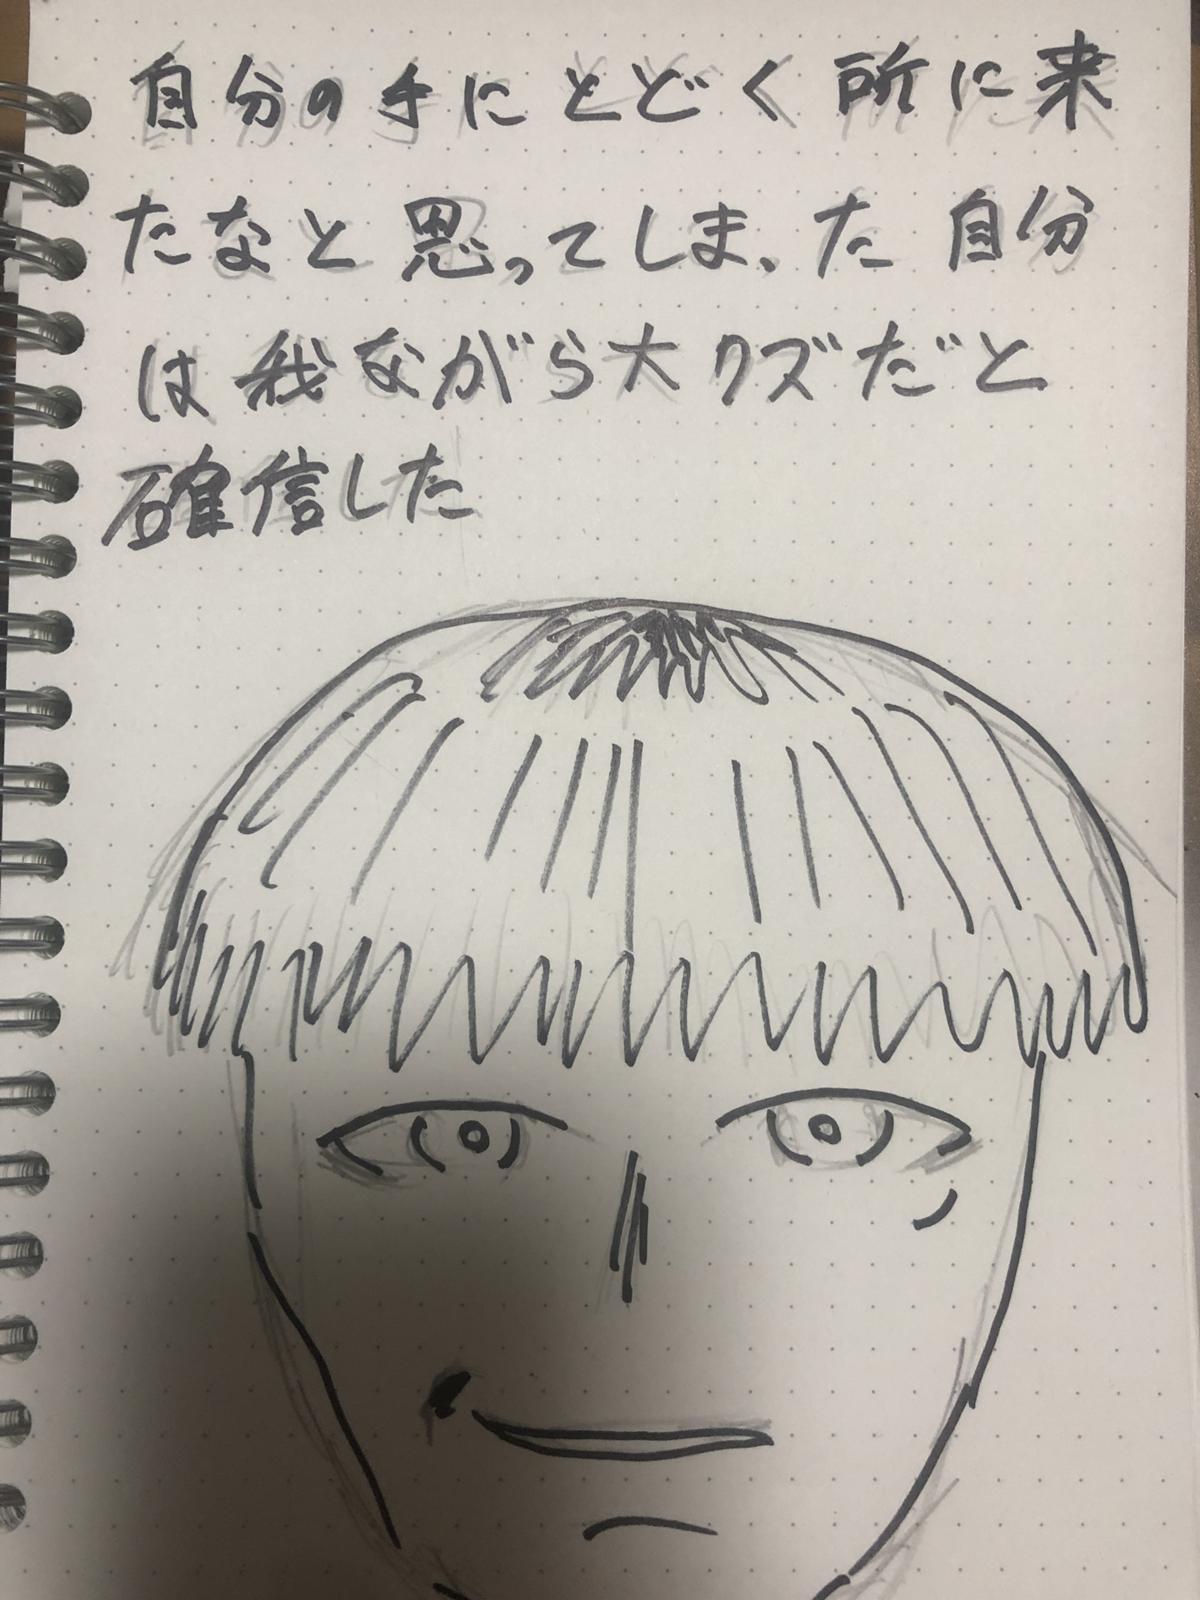 自分の手にとどく所に来
たなと思ってしまった自分
は我ながら大クズだと
確信した